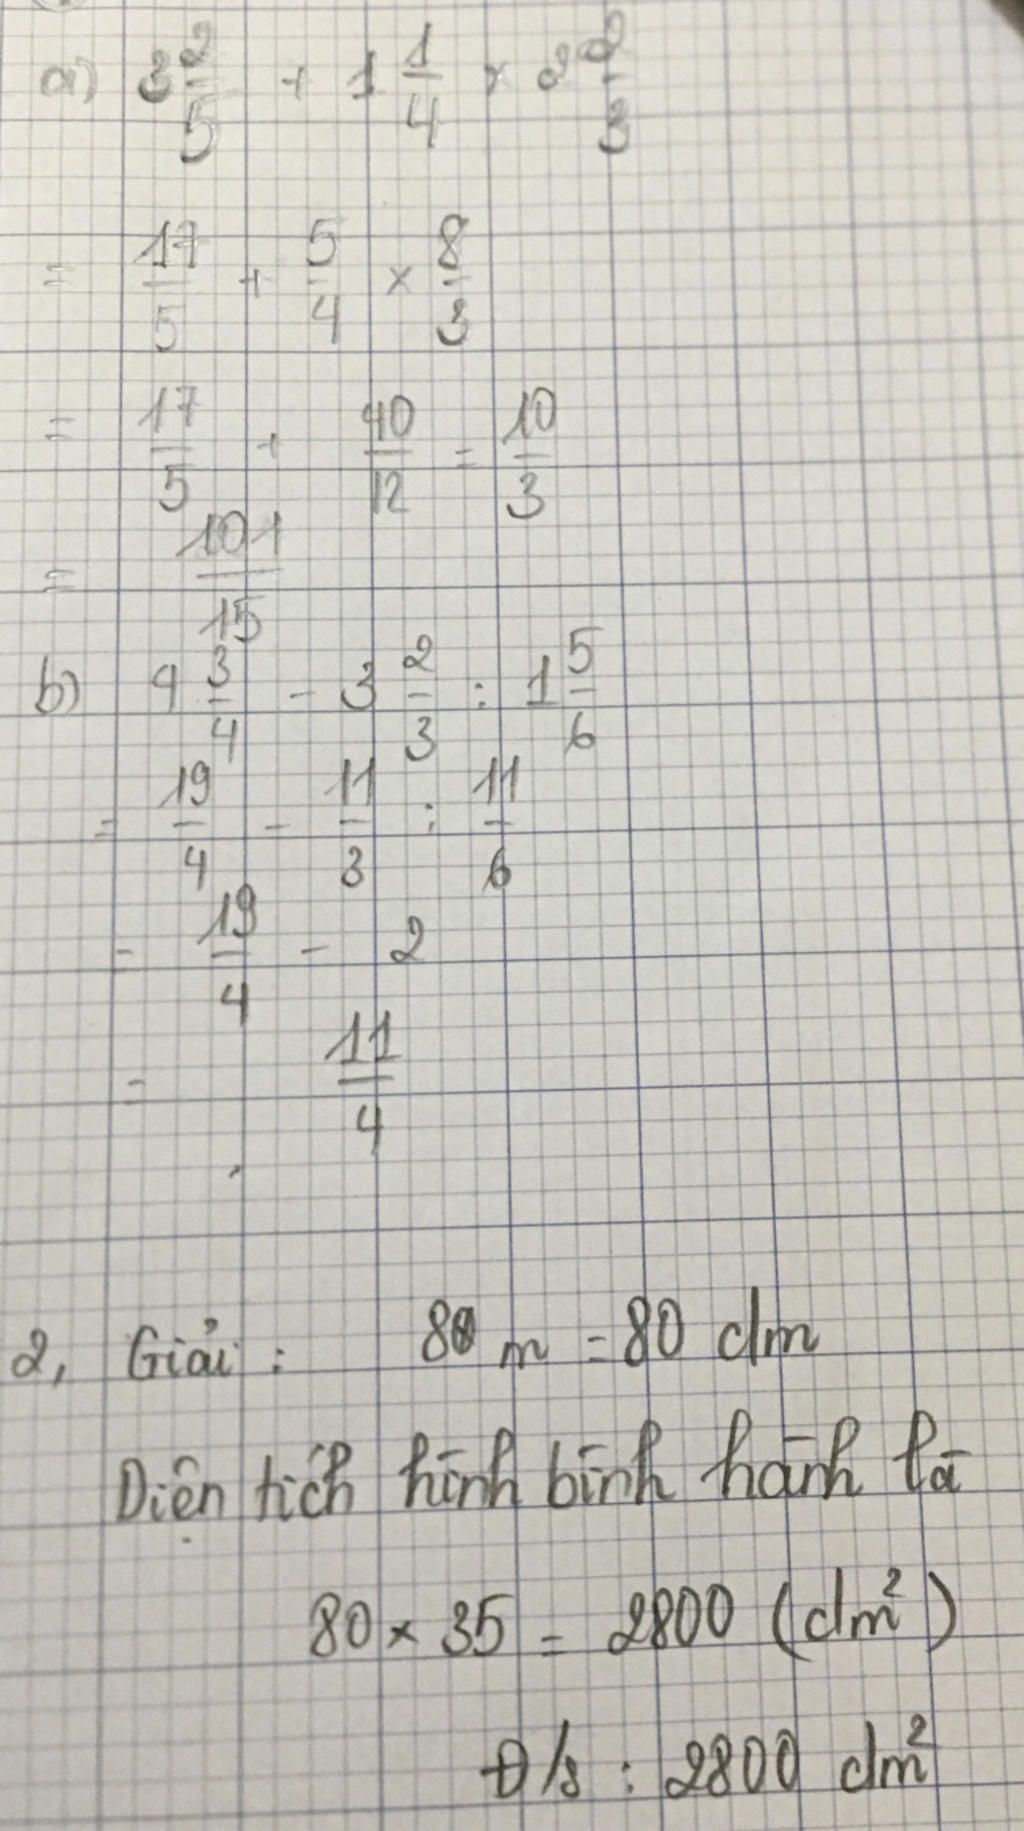 a) 3 2/5 + 1 1/4 × 2 2/3
= 17/5 + 5/4 × 8/3
= 17/5 + 40/12 = 10/3
= 101/15
b) 4 3/4 - 3 2/3 : 1 5/6
= 19/4 - 11/3 : 11/6
= 19/4 - 2
= 11/4
2, Giải : 80 m = 80 dm
Diện tích hình bình hành là
80 × 35 = 2800 (dm²)
Đ/s : 2800 dm²